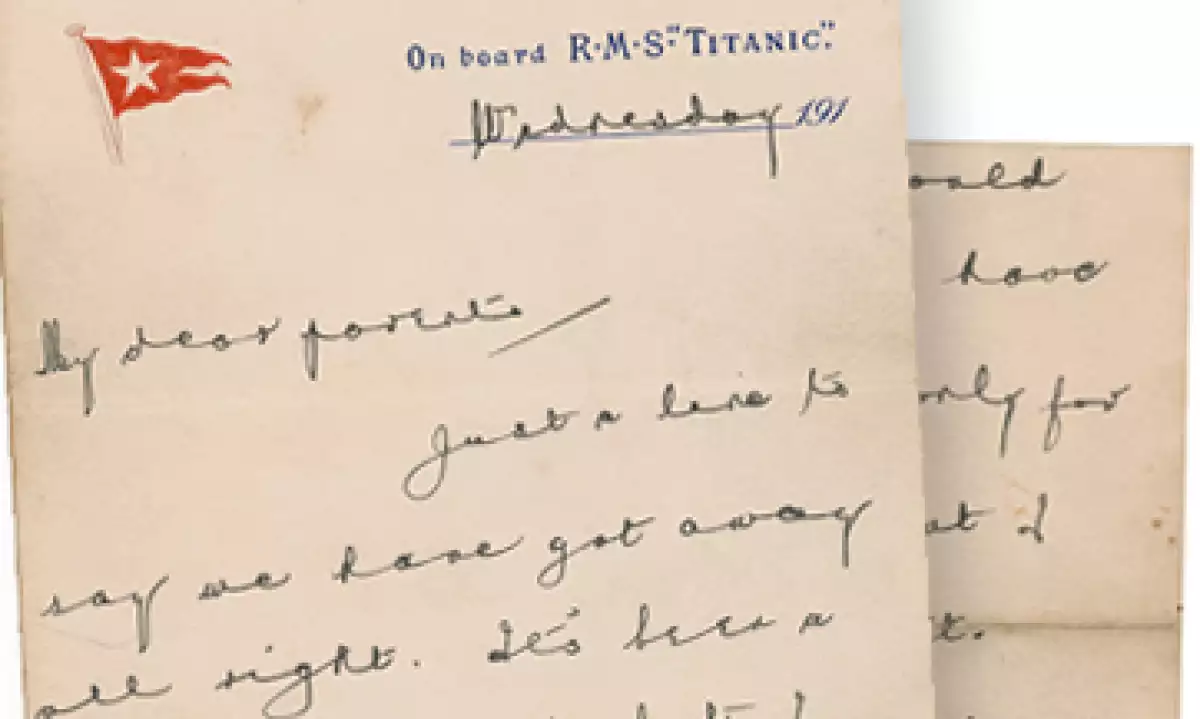 On board R·M·S·"TITANIC".
Wednesday 191
My dear parents
Just a line to
say we have got away
all right. It's been a
have
only for
at I
it.